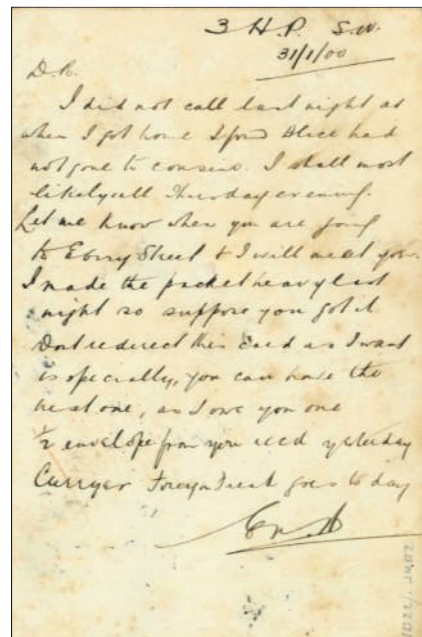 3 H.P. S.W.
31/1/00
D. R.
I did not call last night as
when I got home I found Alice had
not gone to cousins. I shall most
likely call Thursday evening.
Let me know when you are going
to Ebury Street & I will meet you.
I made the packet heavy last
night so suppose you got it
Dont redirect this card as I want
is specially, you can have the
next one, as I owe you one
½ envelope from you recd yesterday
Curryer Foreign goes to day